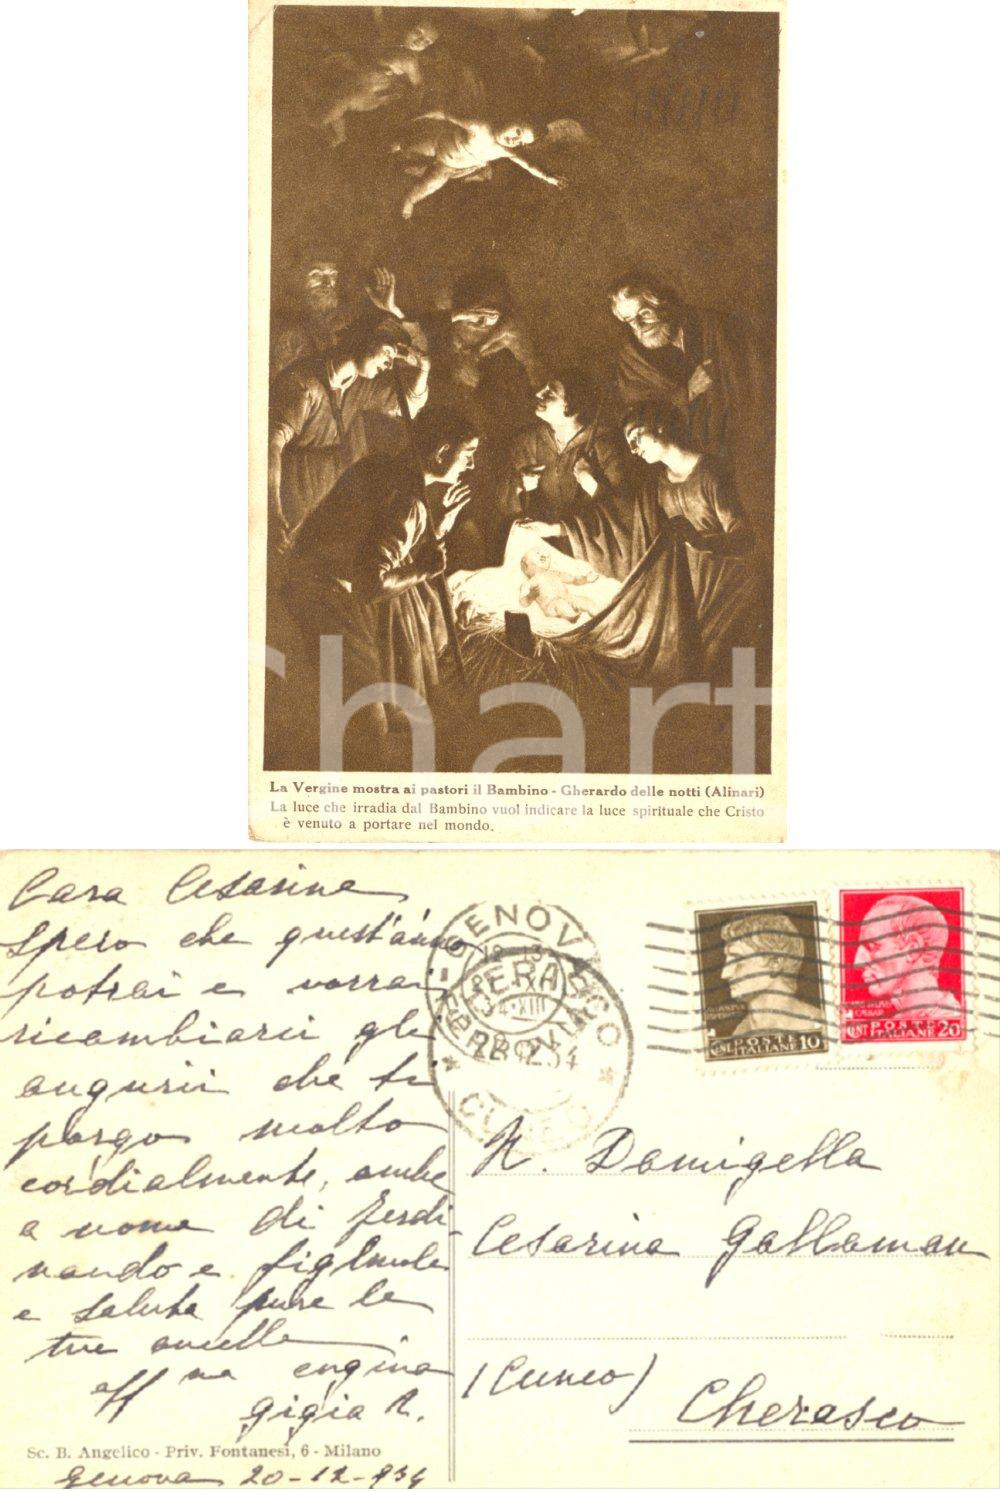 La Vergine mostra ai pastori il Bambino - Gherardo delle notti (Alinari)
La luce che irradia dal Bambino vuol indicare la luce spirituale che Cristo
è venuto a portare nel mondo.
Chart
Cara Cesarina
spero che quest'anno
potrai e vorrai
ricambiarci gli
augurii che ti
porgo molto
cordialmente, anche
a nome di Ferdi
nando e figlinole
e saluta pure le
tue sorelle
aff na cugina
Gigia R.
Sc. B. Angelico - Priv. Fontanesi, 6 - Milano
Genova 20-12-934
GENOVA
CHERASCO
CUNEO
CENT. 10
POSTE
ITALIANE
CENT. 20
POSTE
ITALIANE
N. Damigella
Cesarina Gallaman
(Cuneo)
Cherasco